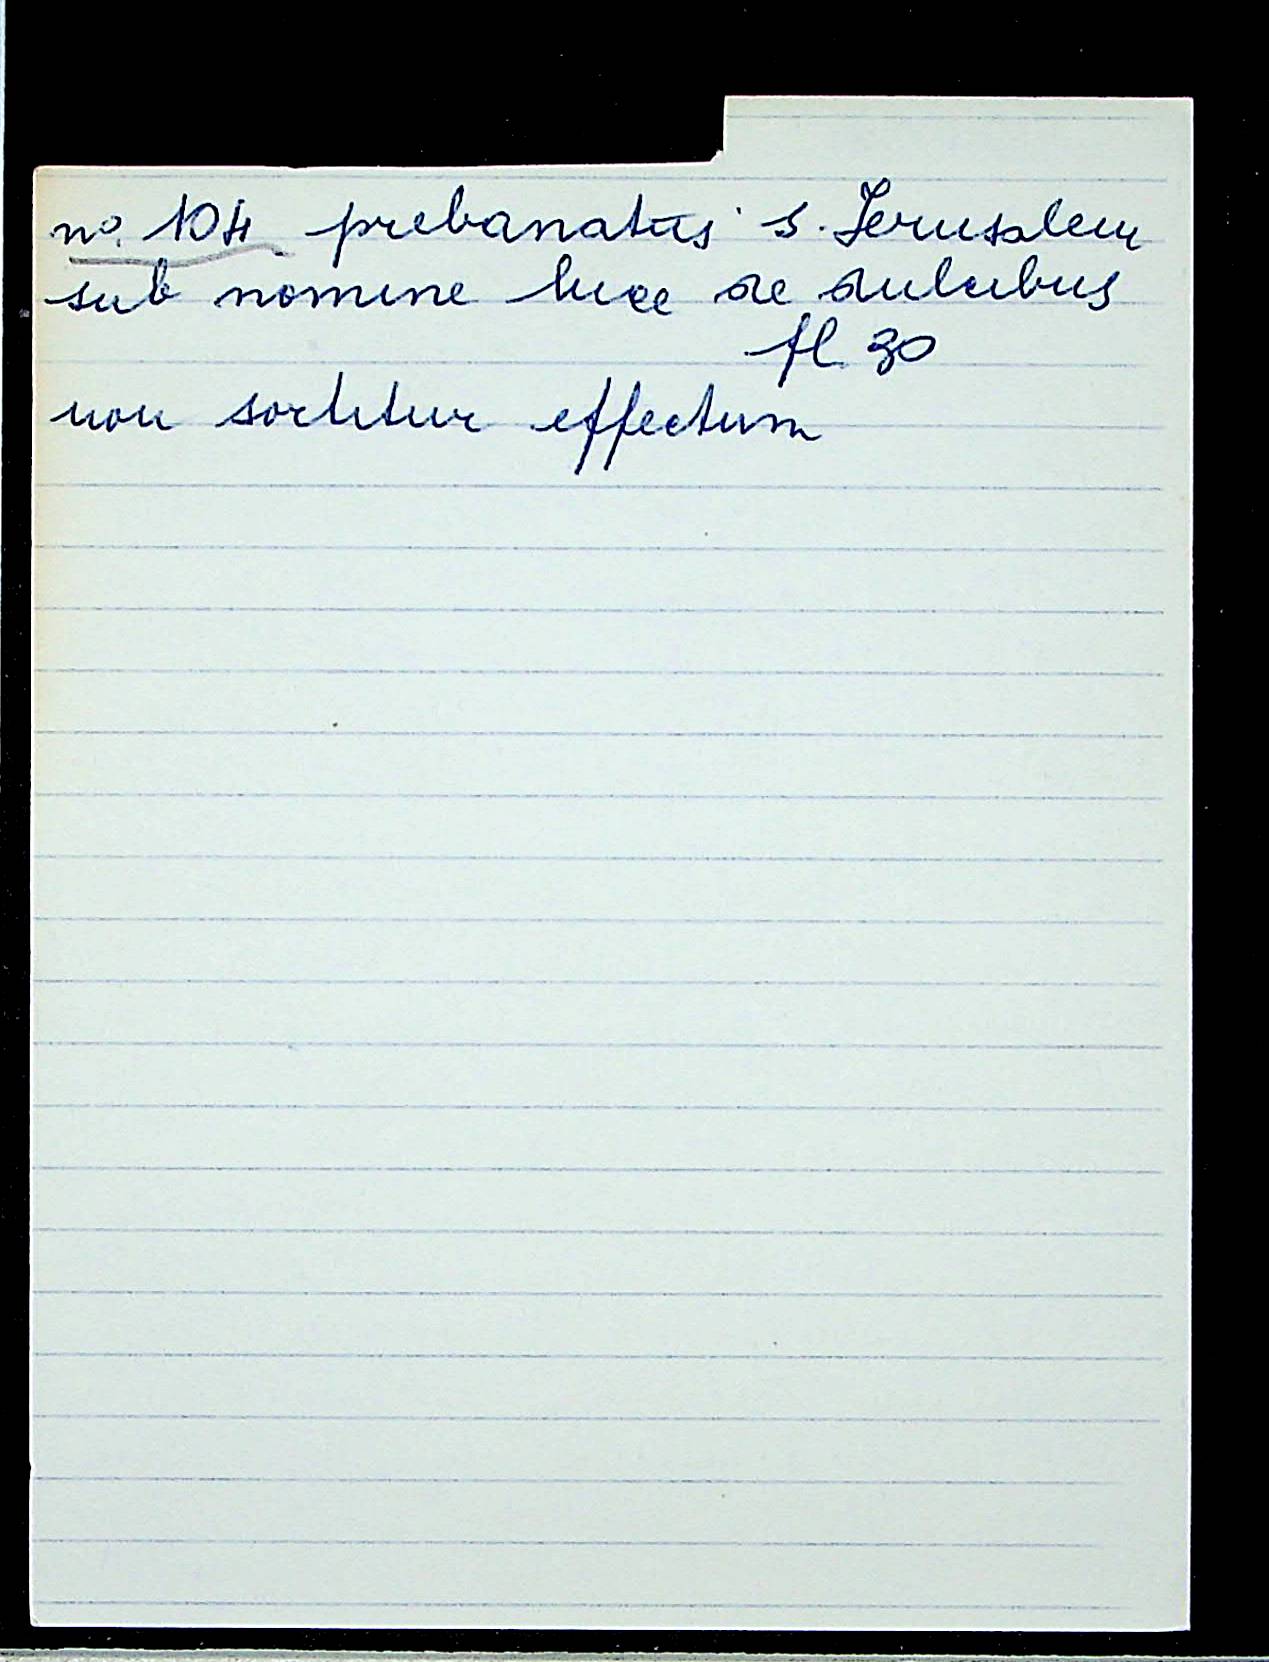 no. 104 prebanatus s. Jerusalem
sub nomine luce de dulcibus
fl. 30
non sortitur effectum